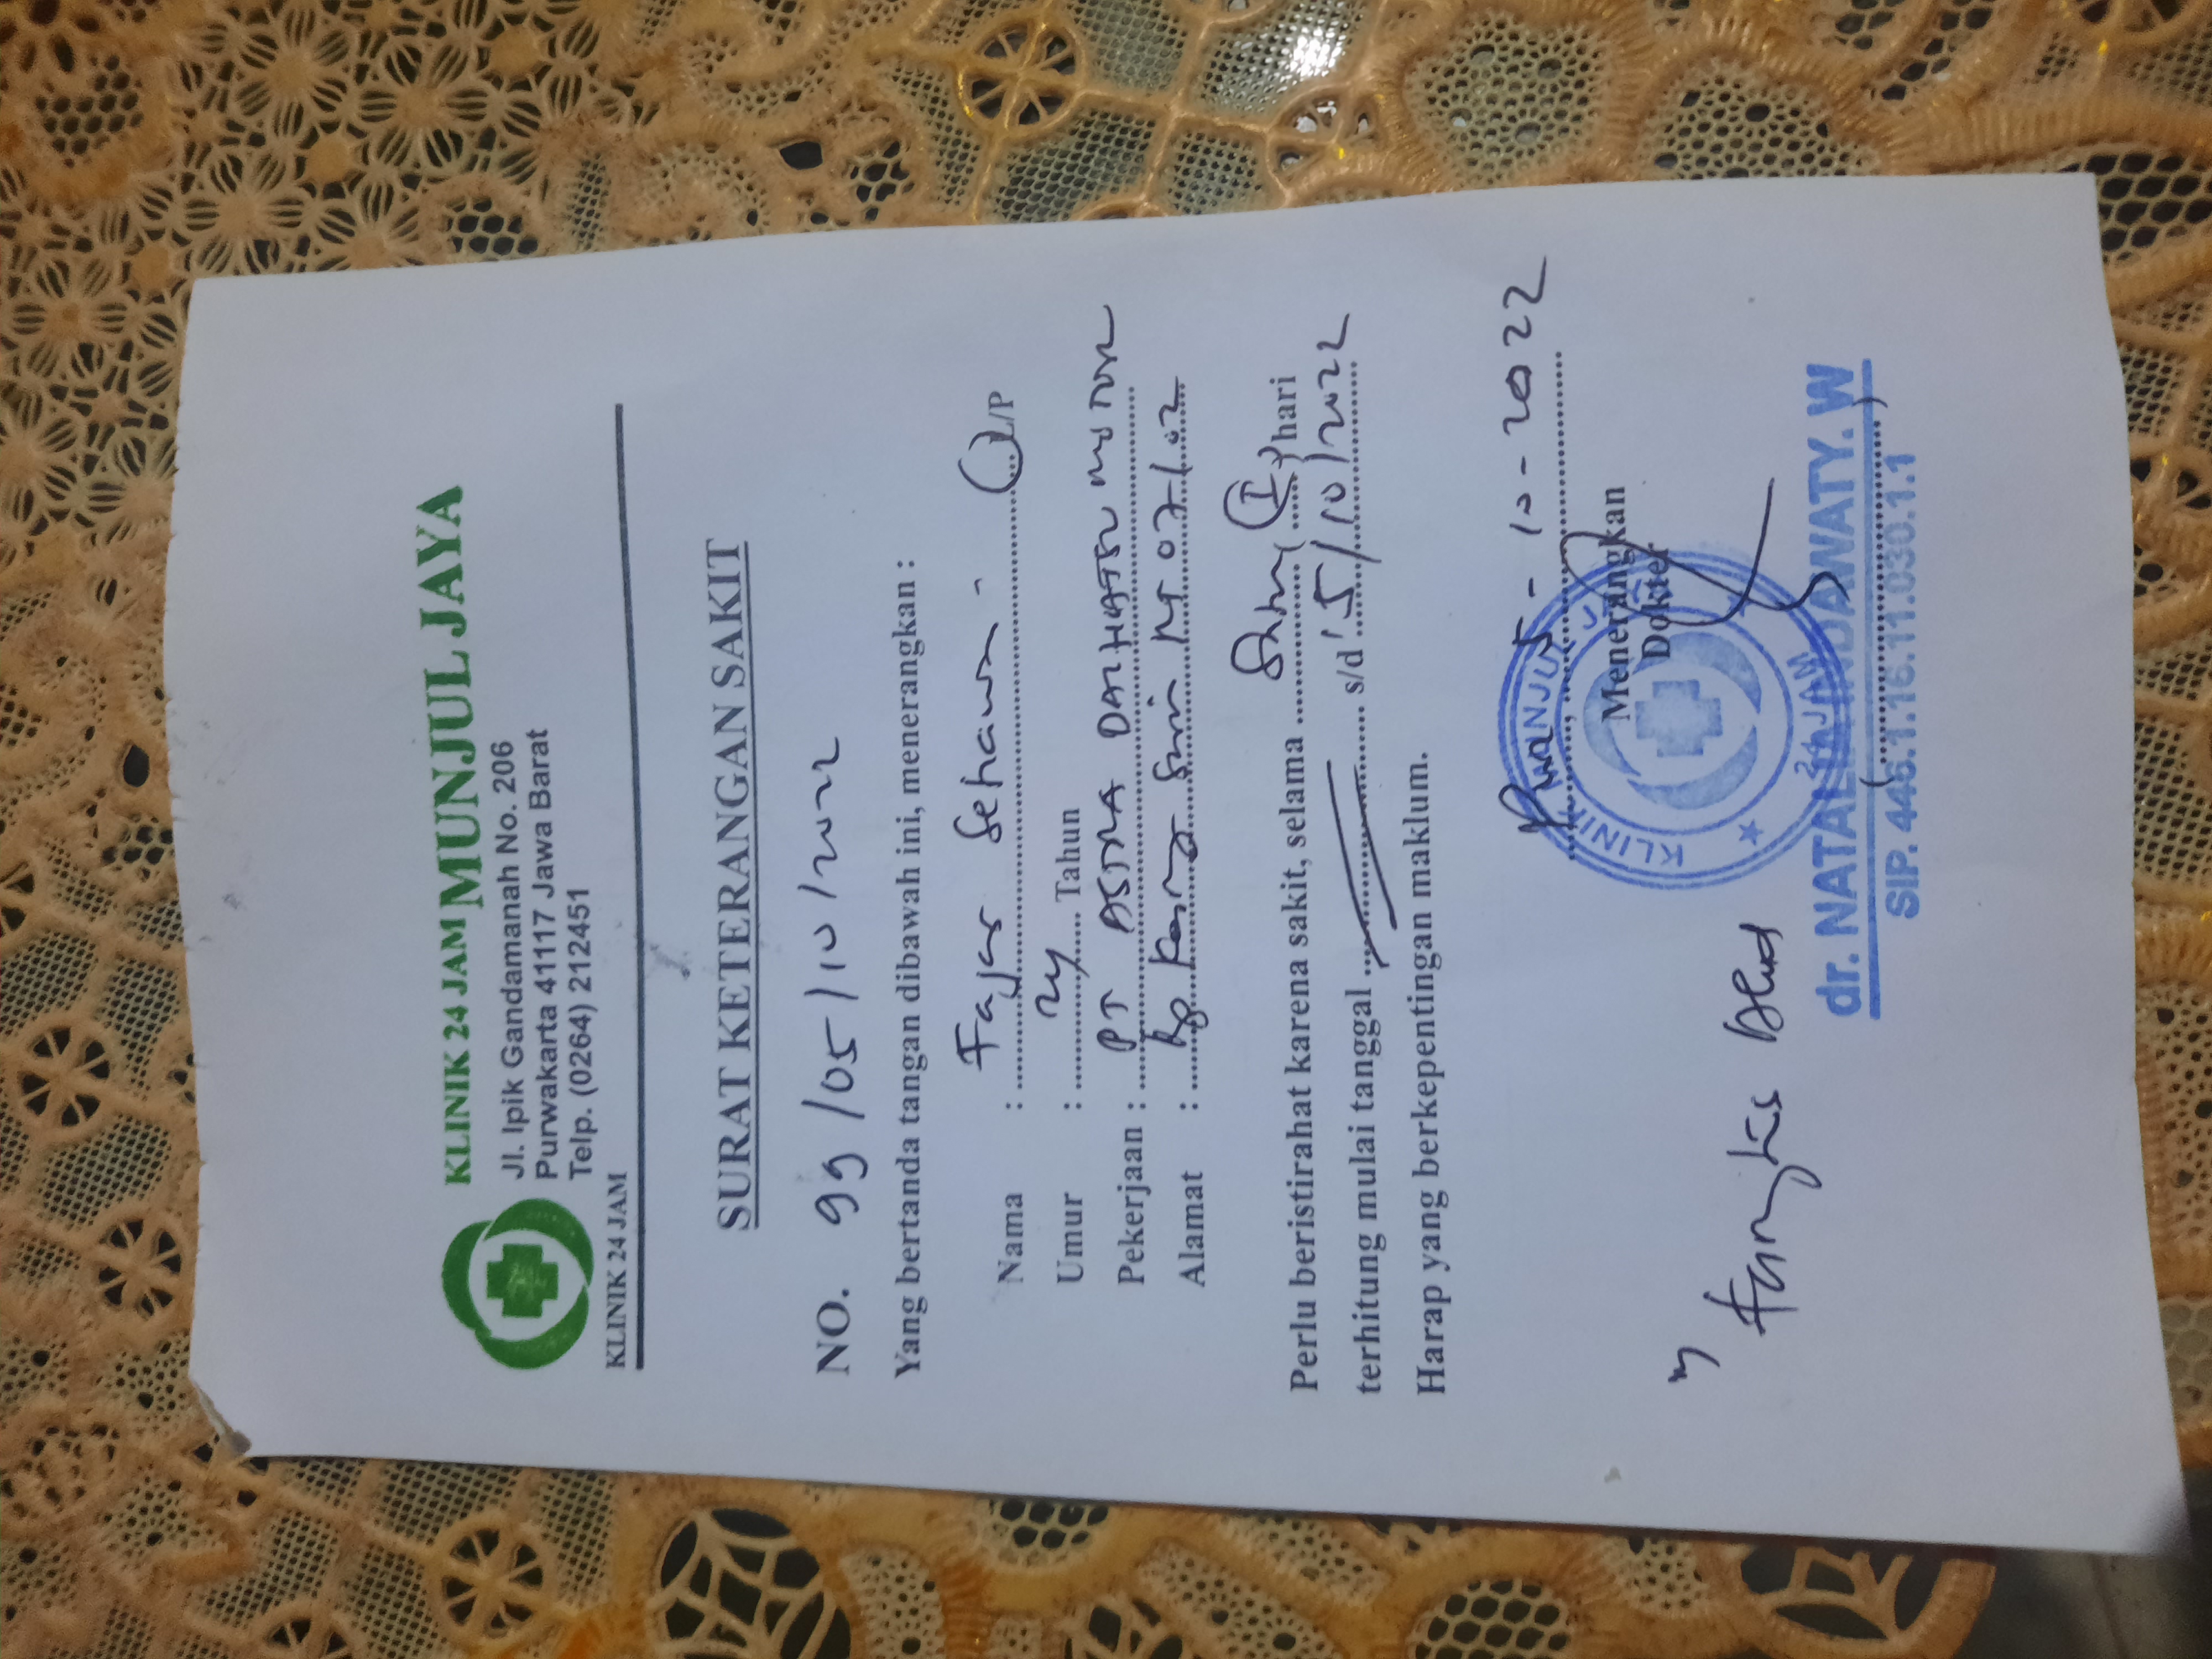 KLINIK 24 JAM MUNJUL JAYA
Jl. Ipik Gandamanah No. 206
Purwakarta 41117 Jawa Barat
Telp. (0264) 212451
KLINIK 24 JAM
SURAT KETERANGAN SAKIT
NO. 99/05/10/2022
Yang bertanda tangan dibawah ini, menerangkan :
Nama : Fajar Setiawan L/P
Umur : 24 Tahun
Pekerjaan : PT ASTRA DAIHATSU MOTOR
Alamat : Kp RT 07/02
Perlu beristirahat karena sakit, selama Satu (I) hari
terhitung mulai tanggal s/d 5/10/2022
Harap yang berkepentingan maklum.
Pwk, 5-10-2022
Menerangkan
Dokter
KLINIK MUNJUL JAYA
24 JAM
dr. NATALIA INDAWATY. W
(..............................)
SIP. 446.1.16.11.030.1.1